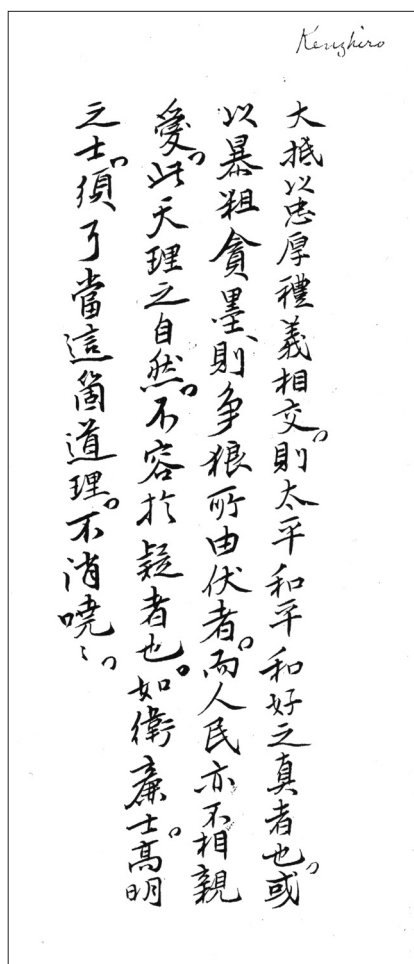 Kenzhiro
大抵以忠厚禮義相交。則太平和平和好之真者也。或
以暴粗貪墨、則爭狠所由伏者。而人民亦不相親
愛。此天理之自然。不容於疑者也。如衛廉士高明
之士。須了當這箇道理。不消嘵〻。